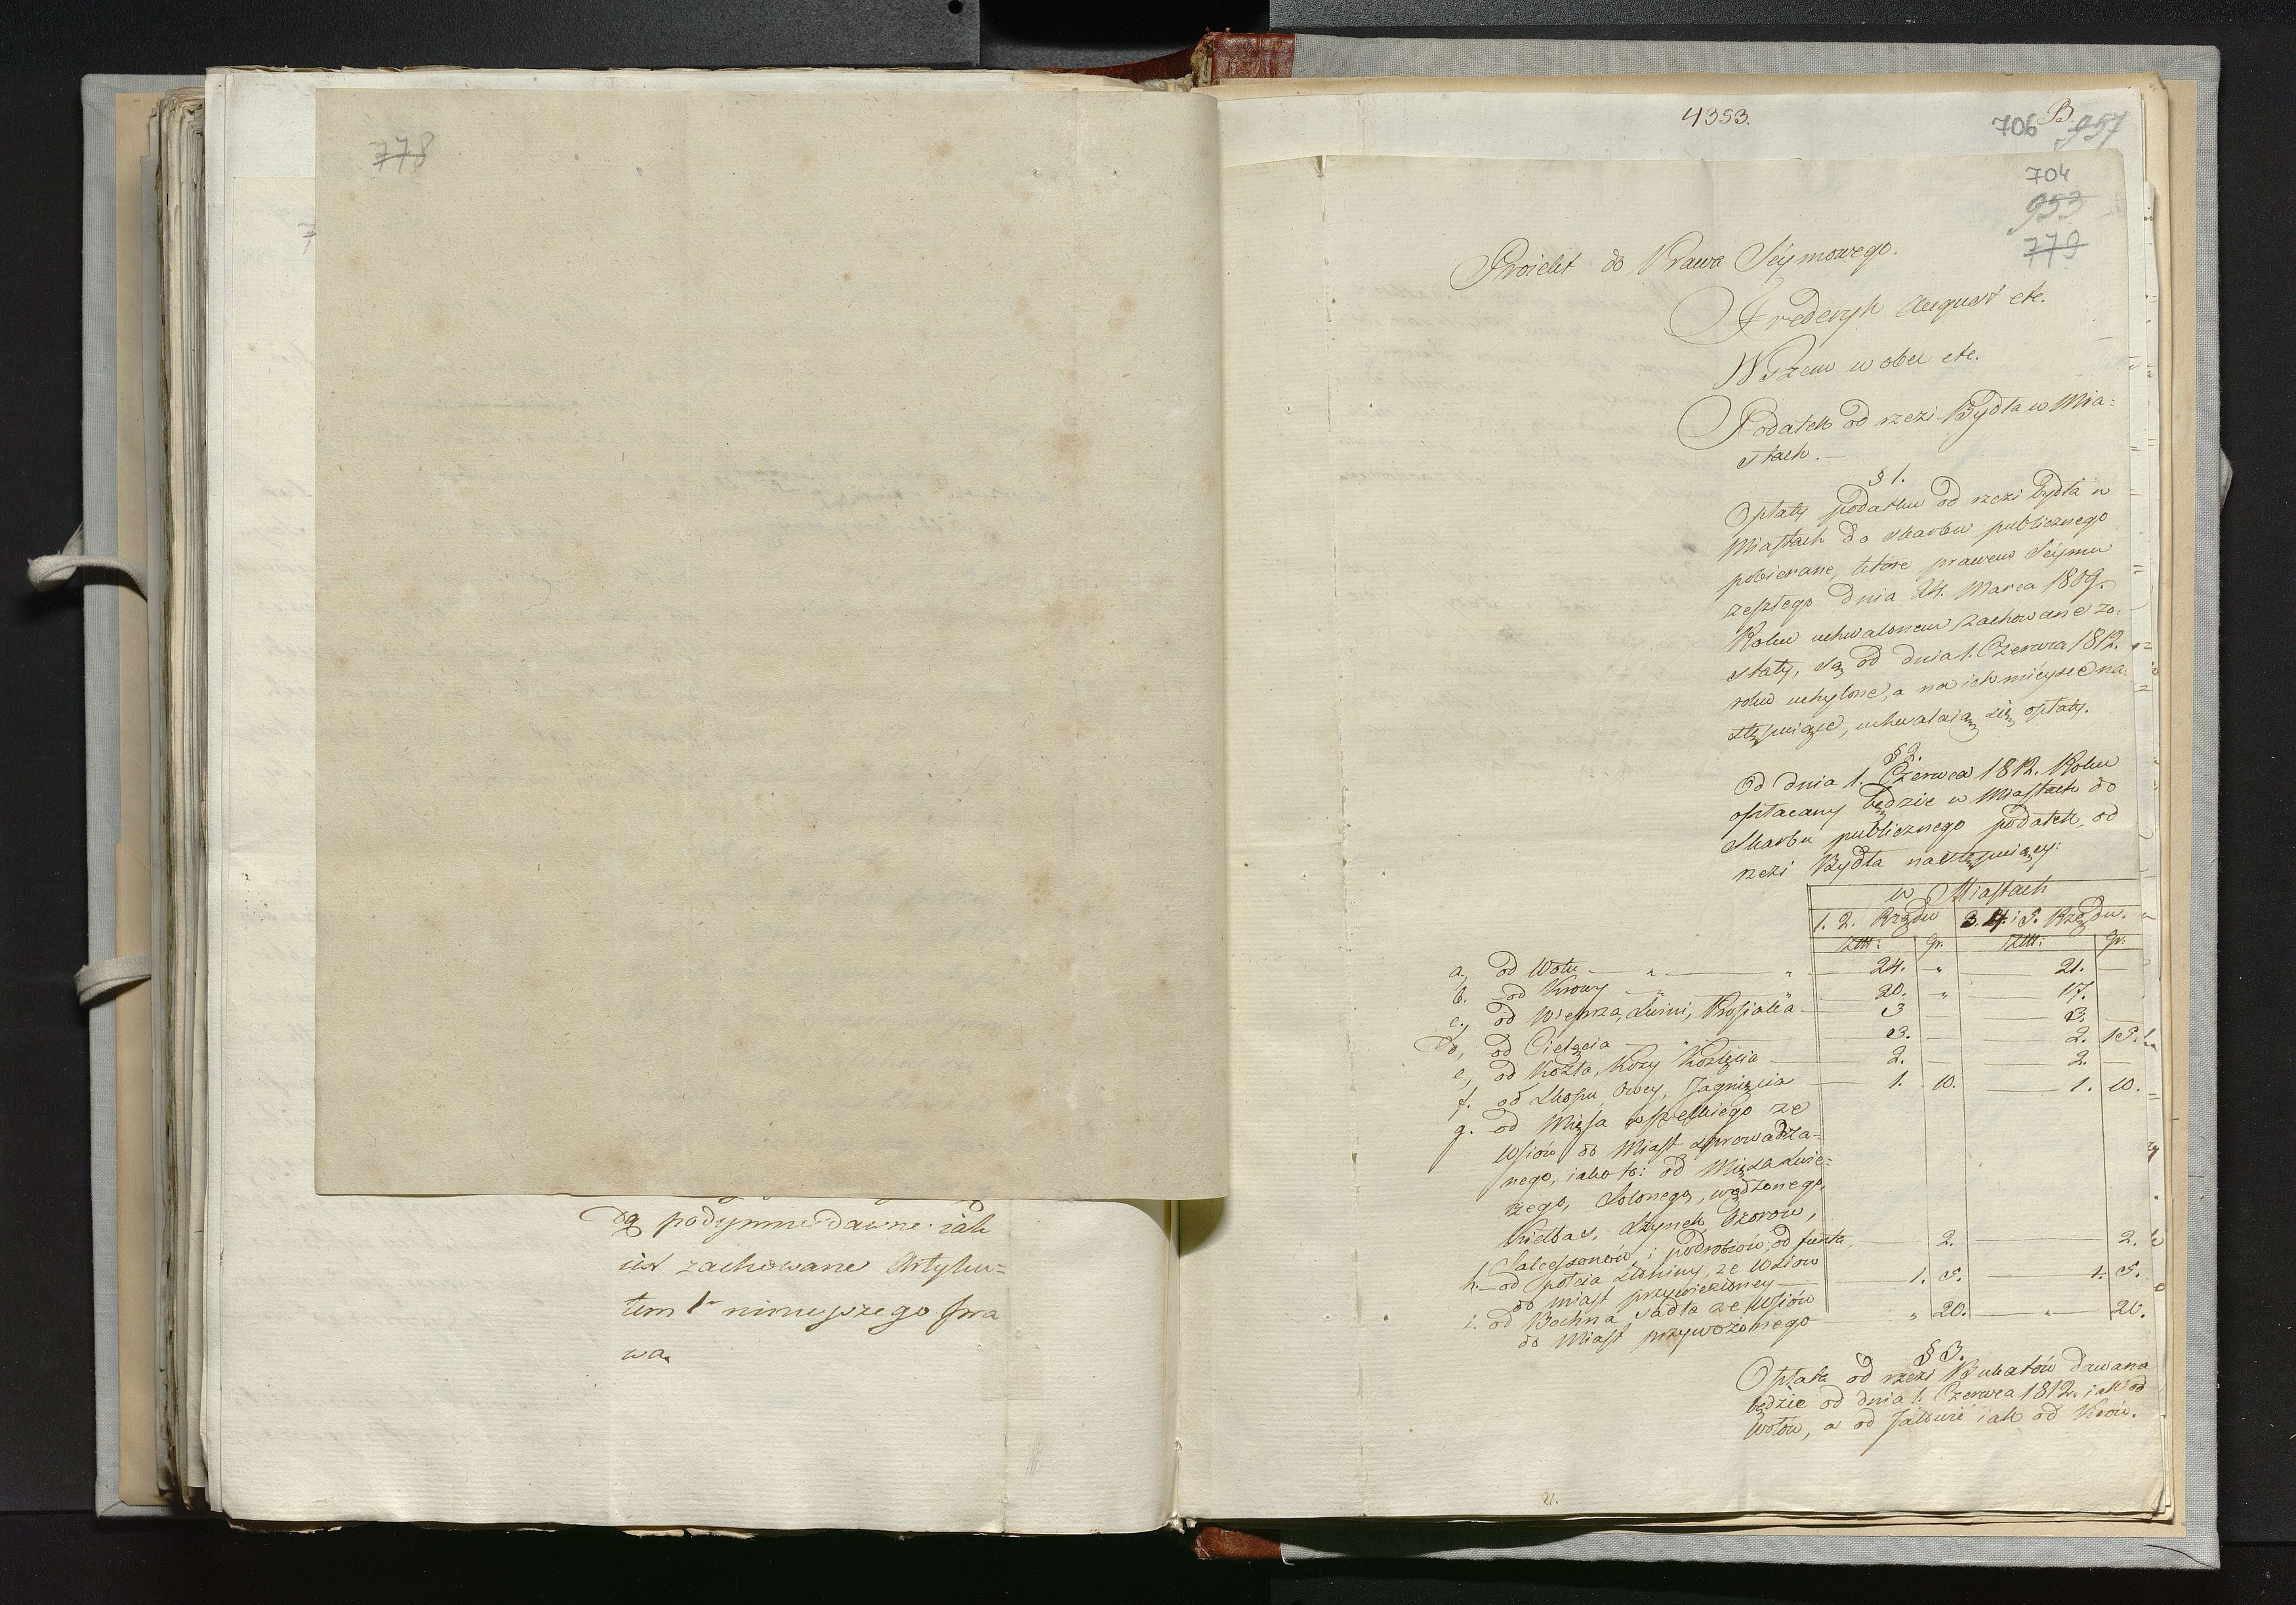 778
dą podymne dawne iak
iest zachowane Artyku=
łem 1m ninieyszego pra
wa.
4353.
706 B. 957
704
953
779
Proiekt do Prawa Seymowego.
Fryderyk August etc.
Wszem w obec etc.
Podatek od rzezi Bydła w Mia=
stach.—
§ 1.
Opłaty podatku od rzezi bydła w
Miastach do skarbu publicznego
pobierane, które prawem Seymu
zeszłego dnia 24. Marca 1809.
Roku uchwalonem zachowane zo-
stały, są od dnia 1. Czerwca 1812.
roku uchylone, a na ich mieysce na-
stępuiące, uchwalaią się opłaty.
§ 2.
Od dnia 1. Czerwca 1812. Roku
opłacany będzie w Miastach do
Skarbu publicznego podatek, od
rzezi Bydła następuiący:
w Miastach
1. 2. Rzędu 3. 4. i 5. Rzędu.
Złtt: Gr. Złtt: Gr:
a, od Wołu — " — " — 24. — " — 21. —
b. od Krowy — " — " — 20. " — 17.
c., od Wieprza, Świni, Prosiaka — 3 — 3. —
d, od Cielęcia — " — 3. — 2. 15.
e, od Kozła, Kozy Koźlęcia — 2. — 2. —
f. od Skopu, Owcy, Jagnięcia — 1. 10. — 1. 10.
g. od Mięsa wszelkiego ze
Wsiów do Miast sprowadza=
nego, iako to: od Mięsa świe=
żego, Solonego, wędzonego,
Kiełbas, Szynek Ozorów,
Salcesonów i podrobiów, od funta — 2. — 2.
h. — od połcia słoniny, ze Wsiów
do miast przywiezioney — 1. 5. — 1. 5.
i. od Bochna Sadła ze Wsiów
do Miast przywożonego — " 20. — " — 20.
§ 3.
Opłata od rzezi Bukatów dawana
będzie od dnia 1. Czerwca 1812. iak od
Wołów, a od Jałowic iak od Krów.